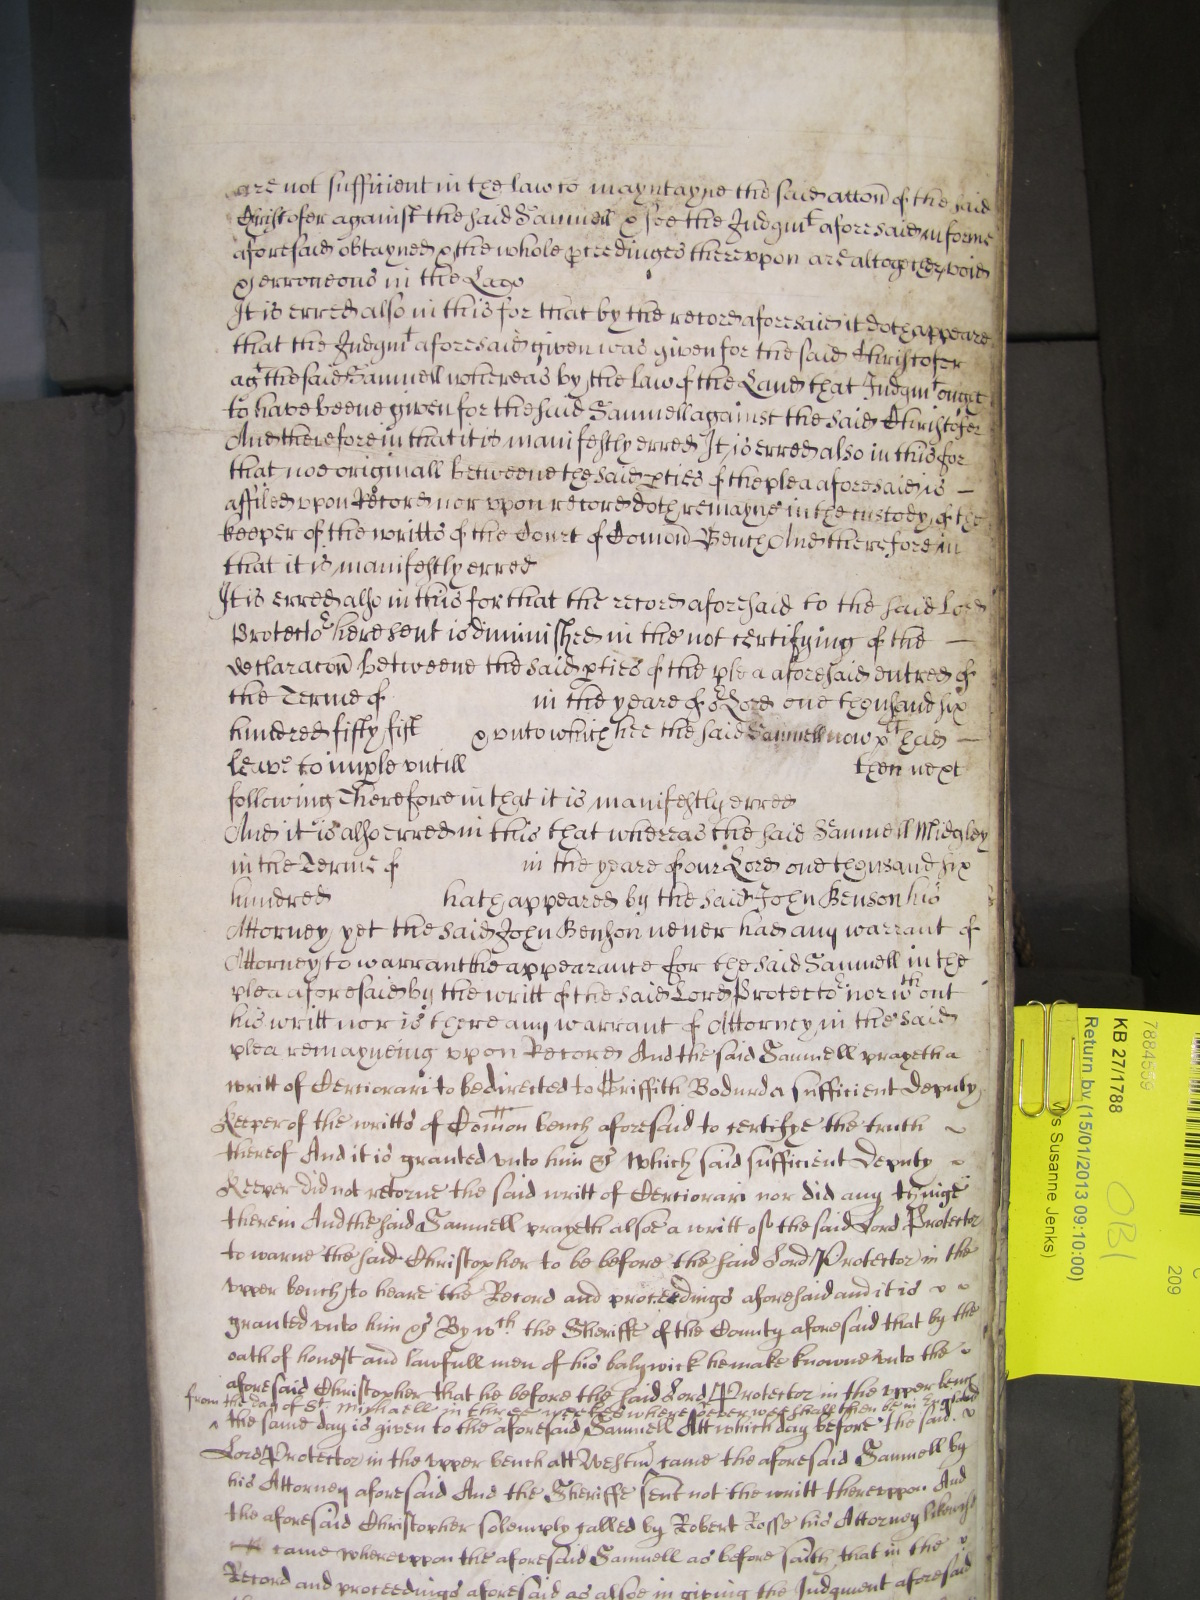 are not sufficient in the law to mayntayne the said accon of the said
Christofer against the said Samuell & soe the Judgmt aforesaid in forme
aforesaid obtayned & the whole pceedinges therevpon are altogether void
& erroneous in the Lawe
It is erred also in this for that by the record aforesaid it doth appeare
that the Judgmt aforesaid given was given for the said Christofer
agt the said Samuell whereas by the law of the Land that Judgmt ought
to have beene given for the said Samuell against the said Christofer
And therefore in that it is manifestly erred It is erred also in this for
that noe originall betweene the said pties of the plea aforesaid is —
affiled vpon Record nor vpon record doth remayne in the custody of the
keeper of the writts of the Court of Comon Bench And therefore in
that it is manifestly erred
It is erred also in this for that the record aforesaid to the said Lord
Protector here sent is diminished in the not certifying of the —
declaracon betweene the said pties of the plea aforesaid entred of
the Terme of in the yeare of or Lord one thousand six
hundred fifty fift & vnto which hee the said Samuell now pt had —
leave to imple vntill then next
following Therefore in that it is manifestly erred
And it is also erred in this that whereas the said Samuell Midgley
in the Terme of in the yeare of our Lord one thousand six
hundred hath appeared by the said John Benson his
Attorney yet the said John Benson never had any warrant of
Attorney to warrant the appearance for the said Samuell in the
plea aforesaid by the writt of the said Lord Protector nor wthout
his writt nor is there any warrant of Attorney in the said
plea remayneing vpon Record And the said Samuell prayeth a
writt of Certiorari to be directed to Griffith Bodurda sufficient Deputy
Keeper of the writts of Comon bench aforesaid to certifye the truth
thereof And it is granted vnto him &c Which said sufficient Deputy
Keeper did not retorne the said writt of Certiorari nor did any thinge
therein And the said Samuell prayeth alsoe a writt of the said Lord Protector
to warne the said Christopher to be before the said Lord Protector in the
vpper bench to heare the Record and proceedings aforesaid and it is
granted vnto him &c By wch the Sheriffe of the County aforesaid that by the
oath of honest and lawfull men of his balywick he make knowne vnto the
aforesaid Christopher that he before the said Lord Protector in the vpper bench
from the day of St. Michaell in three weekes wheresoever wee shall then be in England
the same day is given to the aforesaid Samuell Att which day before the said
Lord Protector in the vpper bench att Westmr came the aforesaid Samuell by
his Attorney aforesaid And the Sheriffe sent not the writt therevpon And
the aforesaid Christopher solemply called by Robert Rosse his Attorney likewise
came wherevpon the aforesaid Samuell as before saith that in the
Record and proceedings aforesaid as alsoe in giving the Judgment aforesaid
7884559
KB 27/1788
Return by (15/01/2013 09:10:00)
s Susanne Jenks)
OBI
209